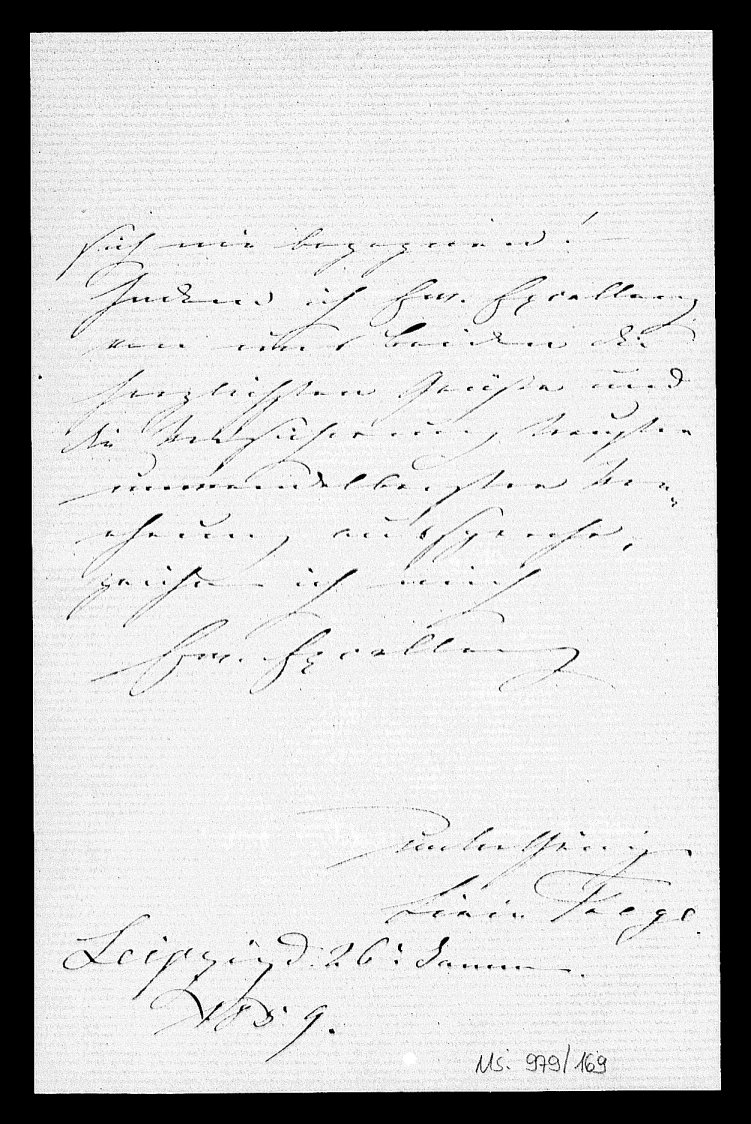 sich nie begegnen! –
Indem ich Ew. Excellenz
von uns beiden die
herzlichsten Grüße und
die Versicherung treuster
unwandelbarster Ver-
ehrung ausspreche,
zeichne ich mich
Ew. Excellenz
unterthänig
Livia Frege.
Leipzig d. 26t Januar
1859.
Ms. 979/169